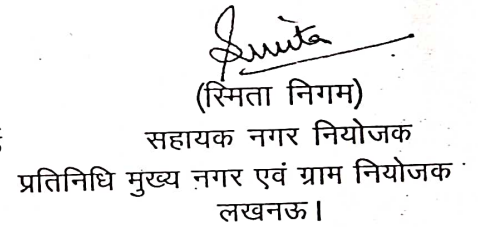 Smita
(स्मिता निगम)
सहायक नगर नियोजक
प्रतिनिधि मुख्य नगर एवं ग्राम नियोजक
लखनऊ।